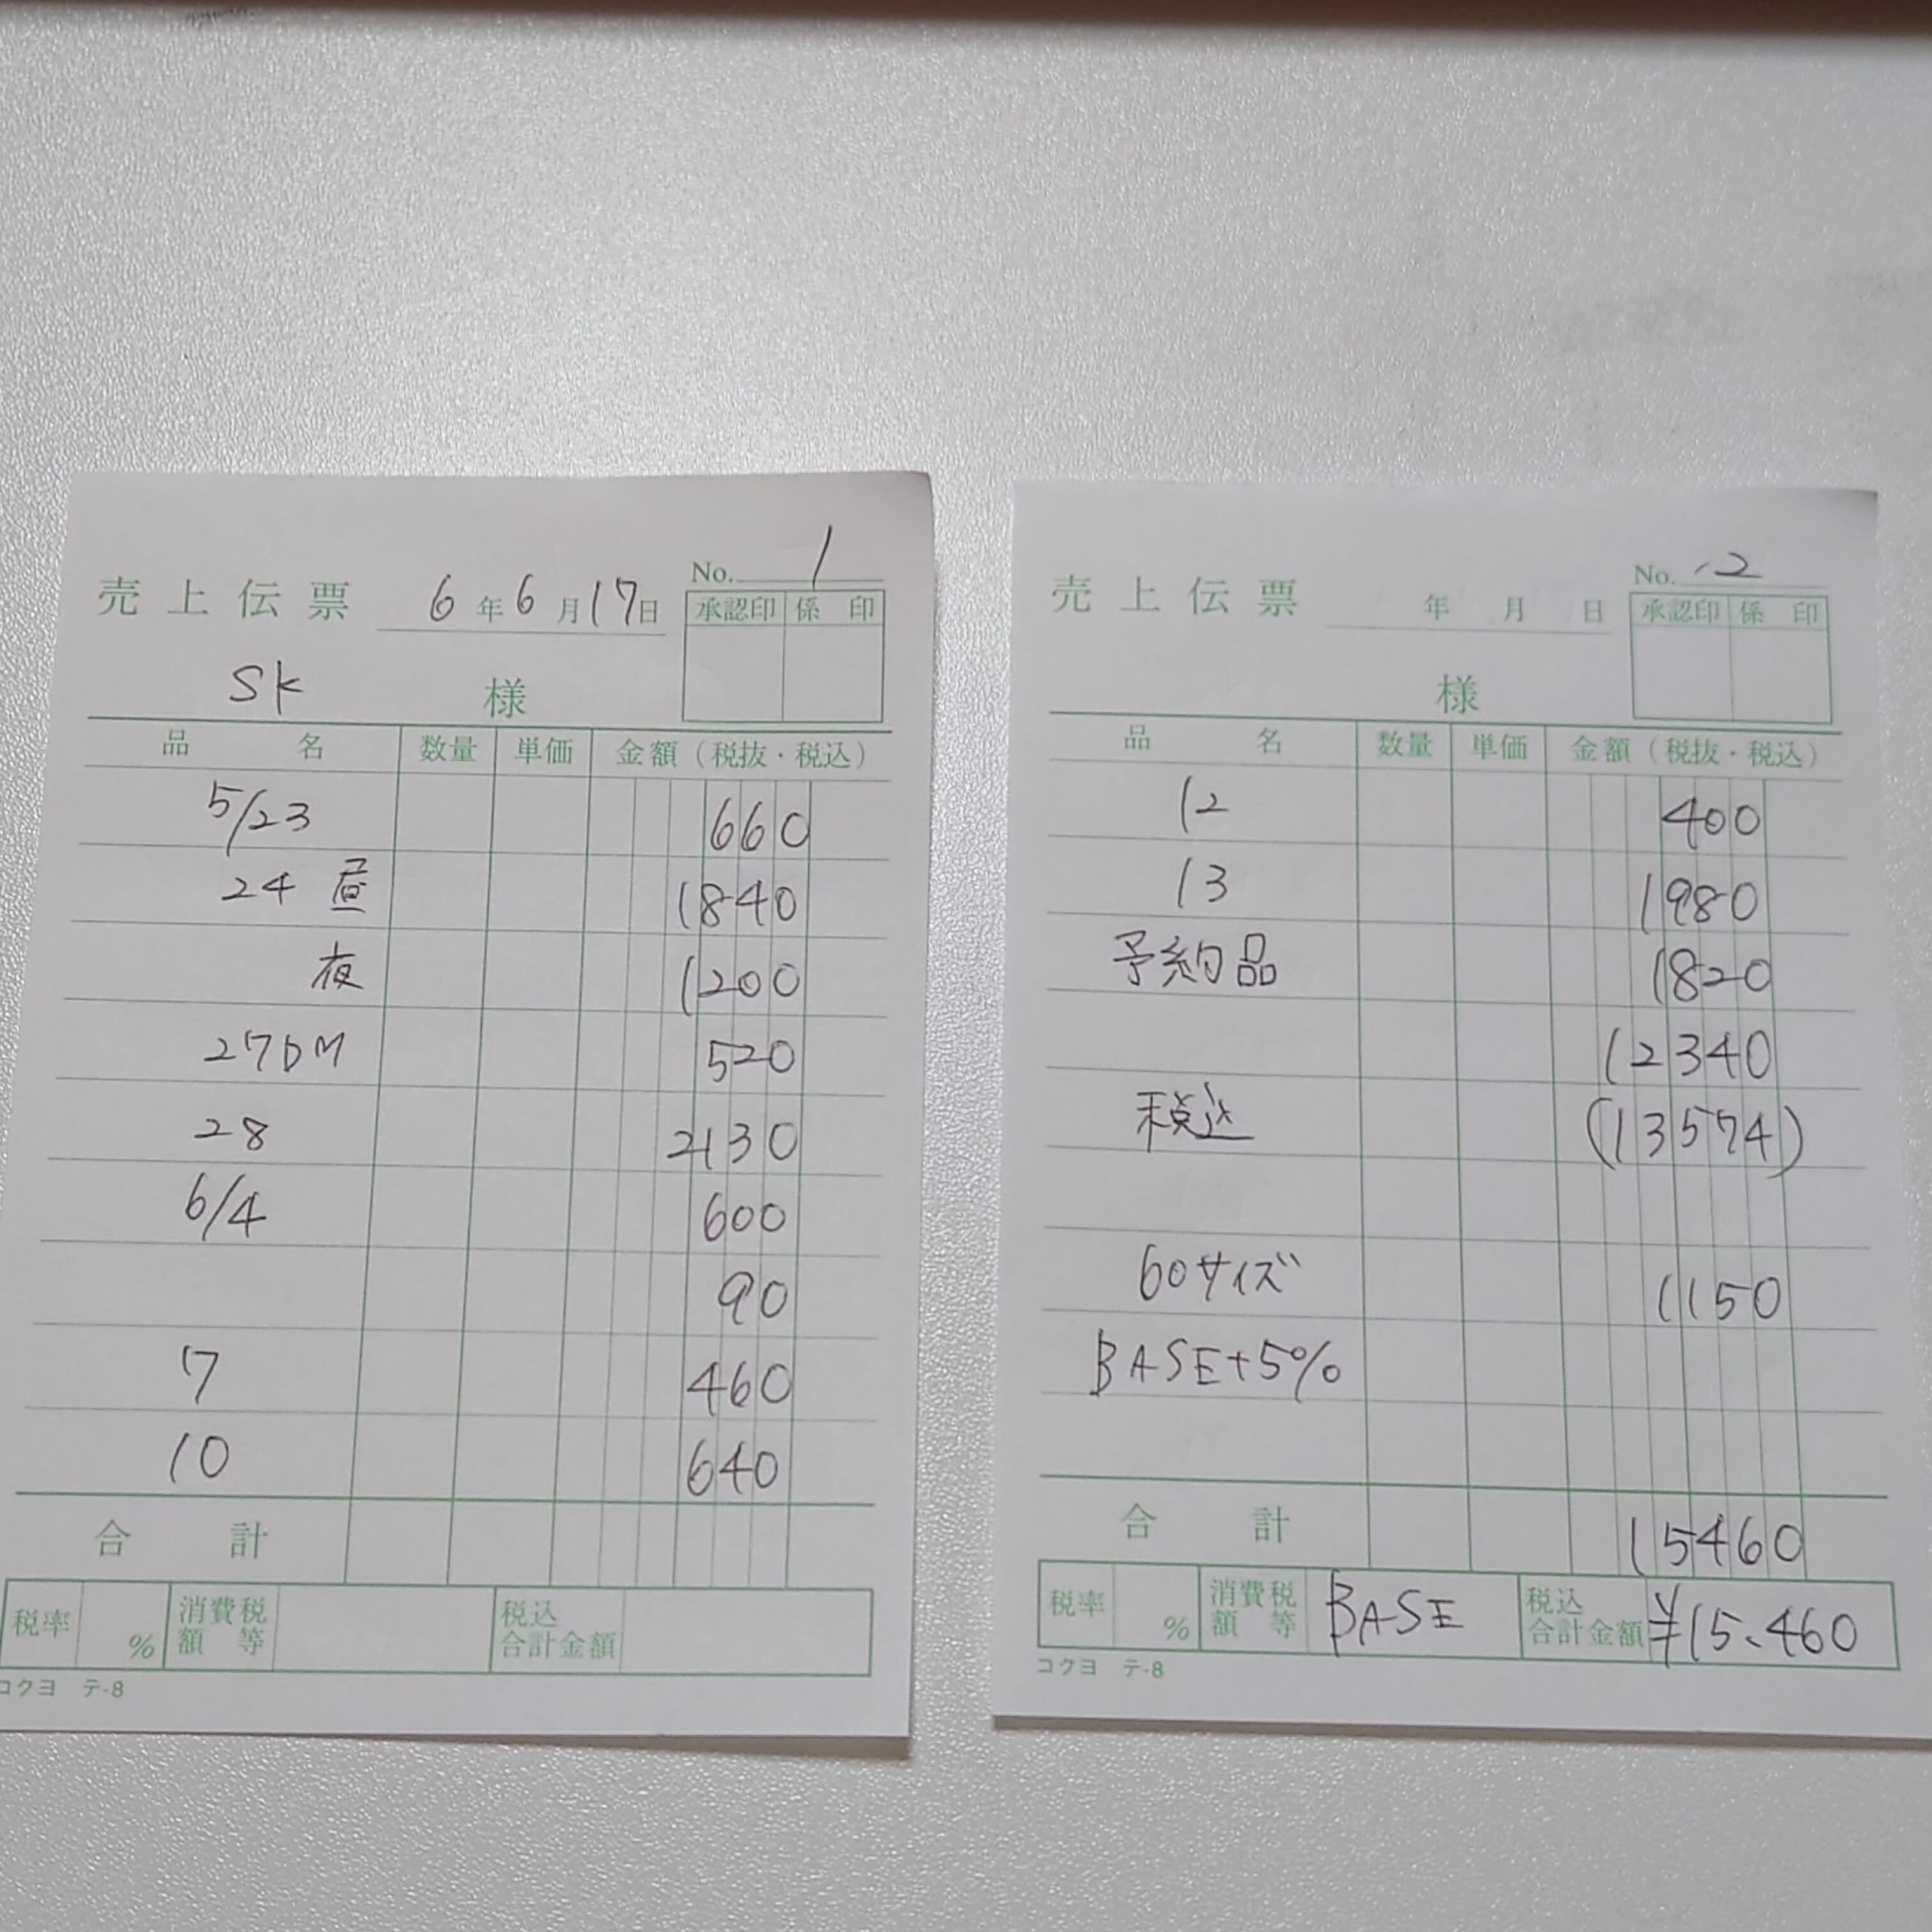 売上伝票 6年6月17日 No. 1
承認印 係印
SK 様
品名 数量 単価 金額（税抜・税込）
5/23 660
24 昼 1840
夜 1200
27DM 520
28 2130
6/4 600
90
7 460
10 640
合計
税率 % 消費税額等 税込合計金額
コクヨ テ-8
売上伝票 年 月 日 No. 2
承認印 係印
様
品名 数量 単価 金額（税抜・税込）
12 400
13 1980
予約品 1820
12340
税込 (13574)
60サイズ 1150
BASE+5%
合計 15460
税率 % 消費税額等 BASE 税込合計金額 ¥15、460
コクヨ テ-8